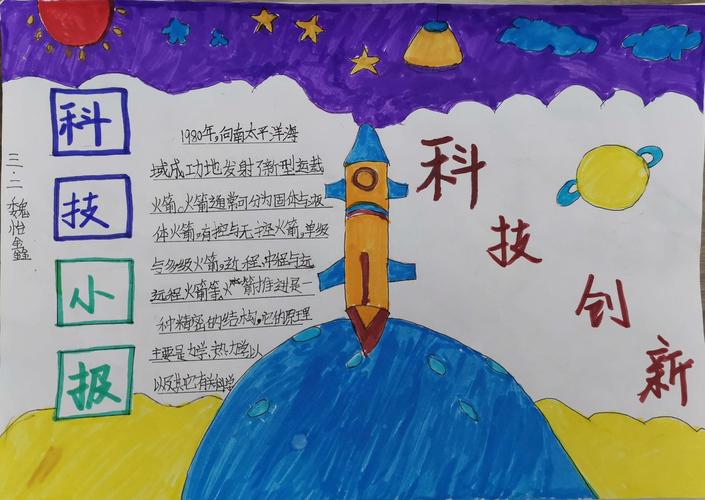 科
技
小
报
三·二 魏怡鑫
1980年,向南太平洋海
域成功地发射了新型运载
火箭。火箭通常可分为固体与液
体火箭,有控与无控火箭,单级
与多级火箭,近程、中程与远
远程火箭等,火箭推进是一
种精密的结构,它的原理
主要是力学、热力学以
以及其它有关科学
科
技
创
新